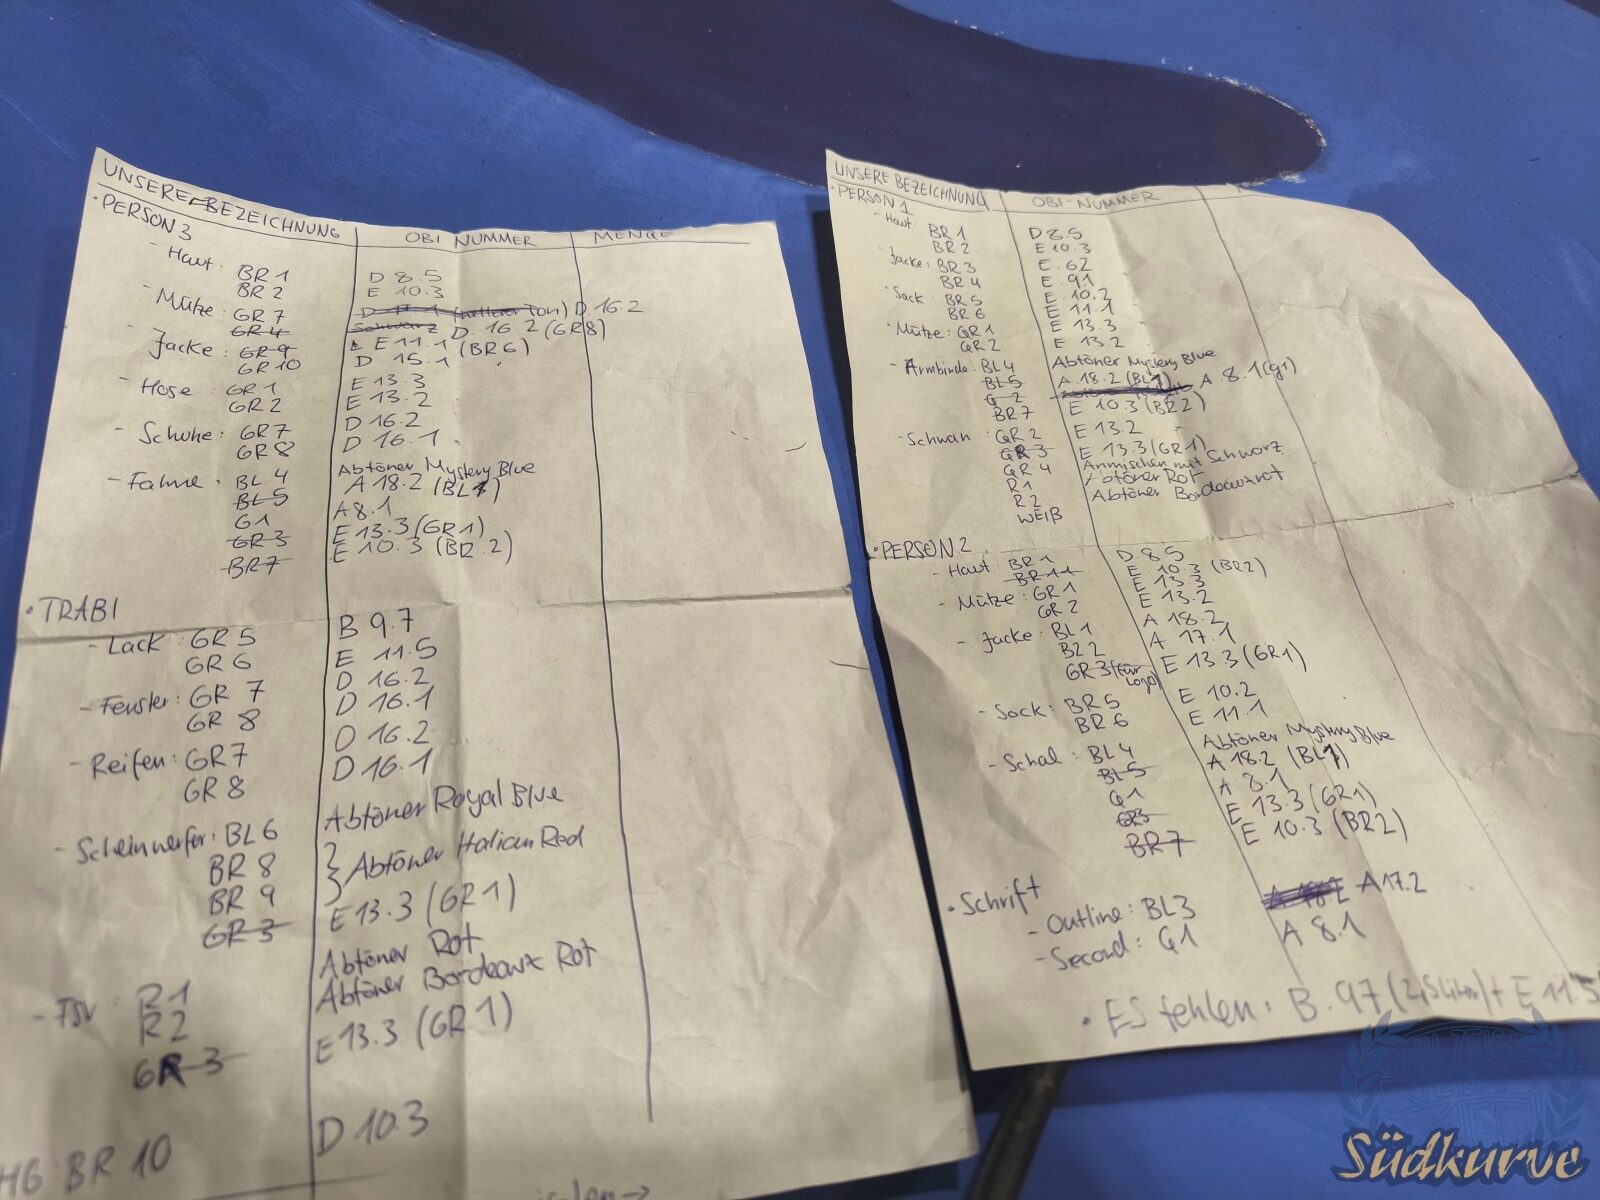 UNSERE BEZEICHNUNG OBI NUMMER MENGE
• PERSON 3
- Haut: BR 1 D 8.5
BR 2 E 10.3
- Mütze: GR 7 D 16.2
GR 4 Schwarz D. 16.2 (GR8)
- Jacke: GR 9 E 11.1 (BR6)
GR 10 D 15.1
- Hose: GR 1 E 13.3
GR 2 E 13.2
- Schuhe: GR 7 D 16.2
GR 8 D 16.1
- Fahne: BL 4 Abtöner Mystery Blue
BL 5 A 18.2 (BL1)
G 1 A 8.1
GR 3 E 13.3 (GR1)
BR 7 E 10.3 (BR.2)
• TRABI
- Lack: GR 5 B 9.7
GR 6 E 11.5
- Fenster: GR 7 D 16.2
GR 8 D 16.1
- Reifen: GR 7 D 16.2
GR 8 D 16.1
- Scheinwerfer: BL 6 Abtöner Royal Blue
BR 8 } Abtöner Italian Red
BR 9
GR 3 E 13.3 (GR1)
- FSV: R 1 Abtöner Rot
R 2 Abtöner Bordeaux Rot
GR 3 E 13.3 (GR1)
HG: BR 10 D 10.3
UNSERE BEZEICHNUNG OBI-NUMMER
• PERSON 1
- Haut: BR 1 D 8.5
BR 2 E 10.3
- Jacke: BR 3 E. 6.2
BR 4 E. 9.1
- Sack: BR 5 E. 10.2
BR 6 E. 11.1
- Mütze: GR 1 E 13.3
GR 2 E 13.2
- Armbinde: BL 4 Abtöner Mystery Blue
BL 5 A 18.2 (BL1)
G 2 A 8.1 (G1)
BR 7 E 10.3 (BR2)
- Schwan: GR 2 E 13.2
GR 3 E 13.3 (GR1)
GR 4 Anmischen mit Schwarz
R 1 Abtöner Rot
R 2 Abtöner Bordeauxrot
WEIß
• PERSON 2
- Haut: BR 1 D 8.5
BR 11 E 10.3 (BR2)
- Mütze: GR 1 E 13.3
GR 2 E 13.2
- Jacke: BL 1 A 18.2
BL 2 A 17.1
GR 3 (für Logo) E 13.3 (GR1)
- Sack: BR 5 E 10.2
BR 6 E 11.1
- Schal: BL 4 Abtöner Mystery Blue
BL 5 A 18.2 (BL1)
G 1 A 8.1
GR3 E 13.3 (GR1)
BR 7 E 10.3 (BR2)
• Schrift
- Outline: BL 3 A 18.2 A 17.2
- Second: G 1 A 8.1
• ES fehlen: B. 9.7 (2,5 Liter) + E 11.5
Südkurve